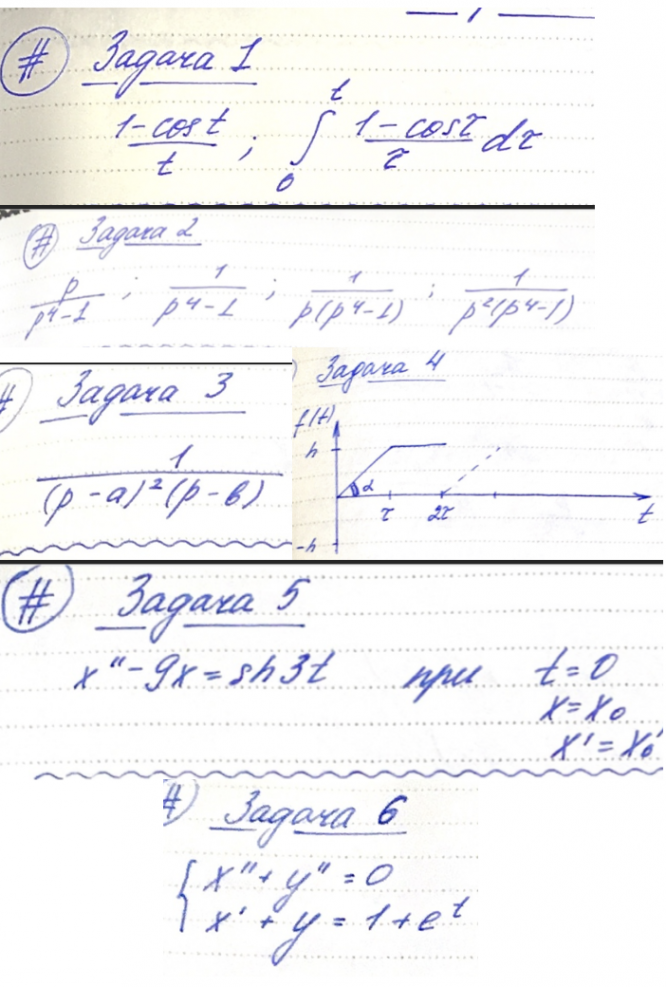 # Задача 1
1-cost/t ; ∫₀ᵗ 1-cosτ/τ dτ
# Задача 2
p/p⁴-1 ; 1/p⁴-1 ; 1/p(p⁴-1) ; 1/p²(p⁴-1)
# Задача 3
1/(p-a)²(p-b)
Задача 4
f(t)
h
α
τ 2τ t
-h
# Задача 5
x"-9x=sh3t при t=0
x=x₀
x'=x₀'
# Задача 6
x"+y"=0
x'+y=1+eᵗ